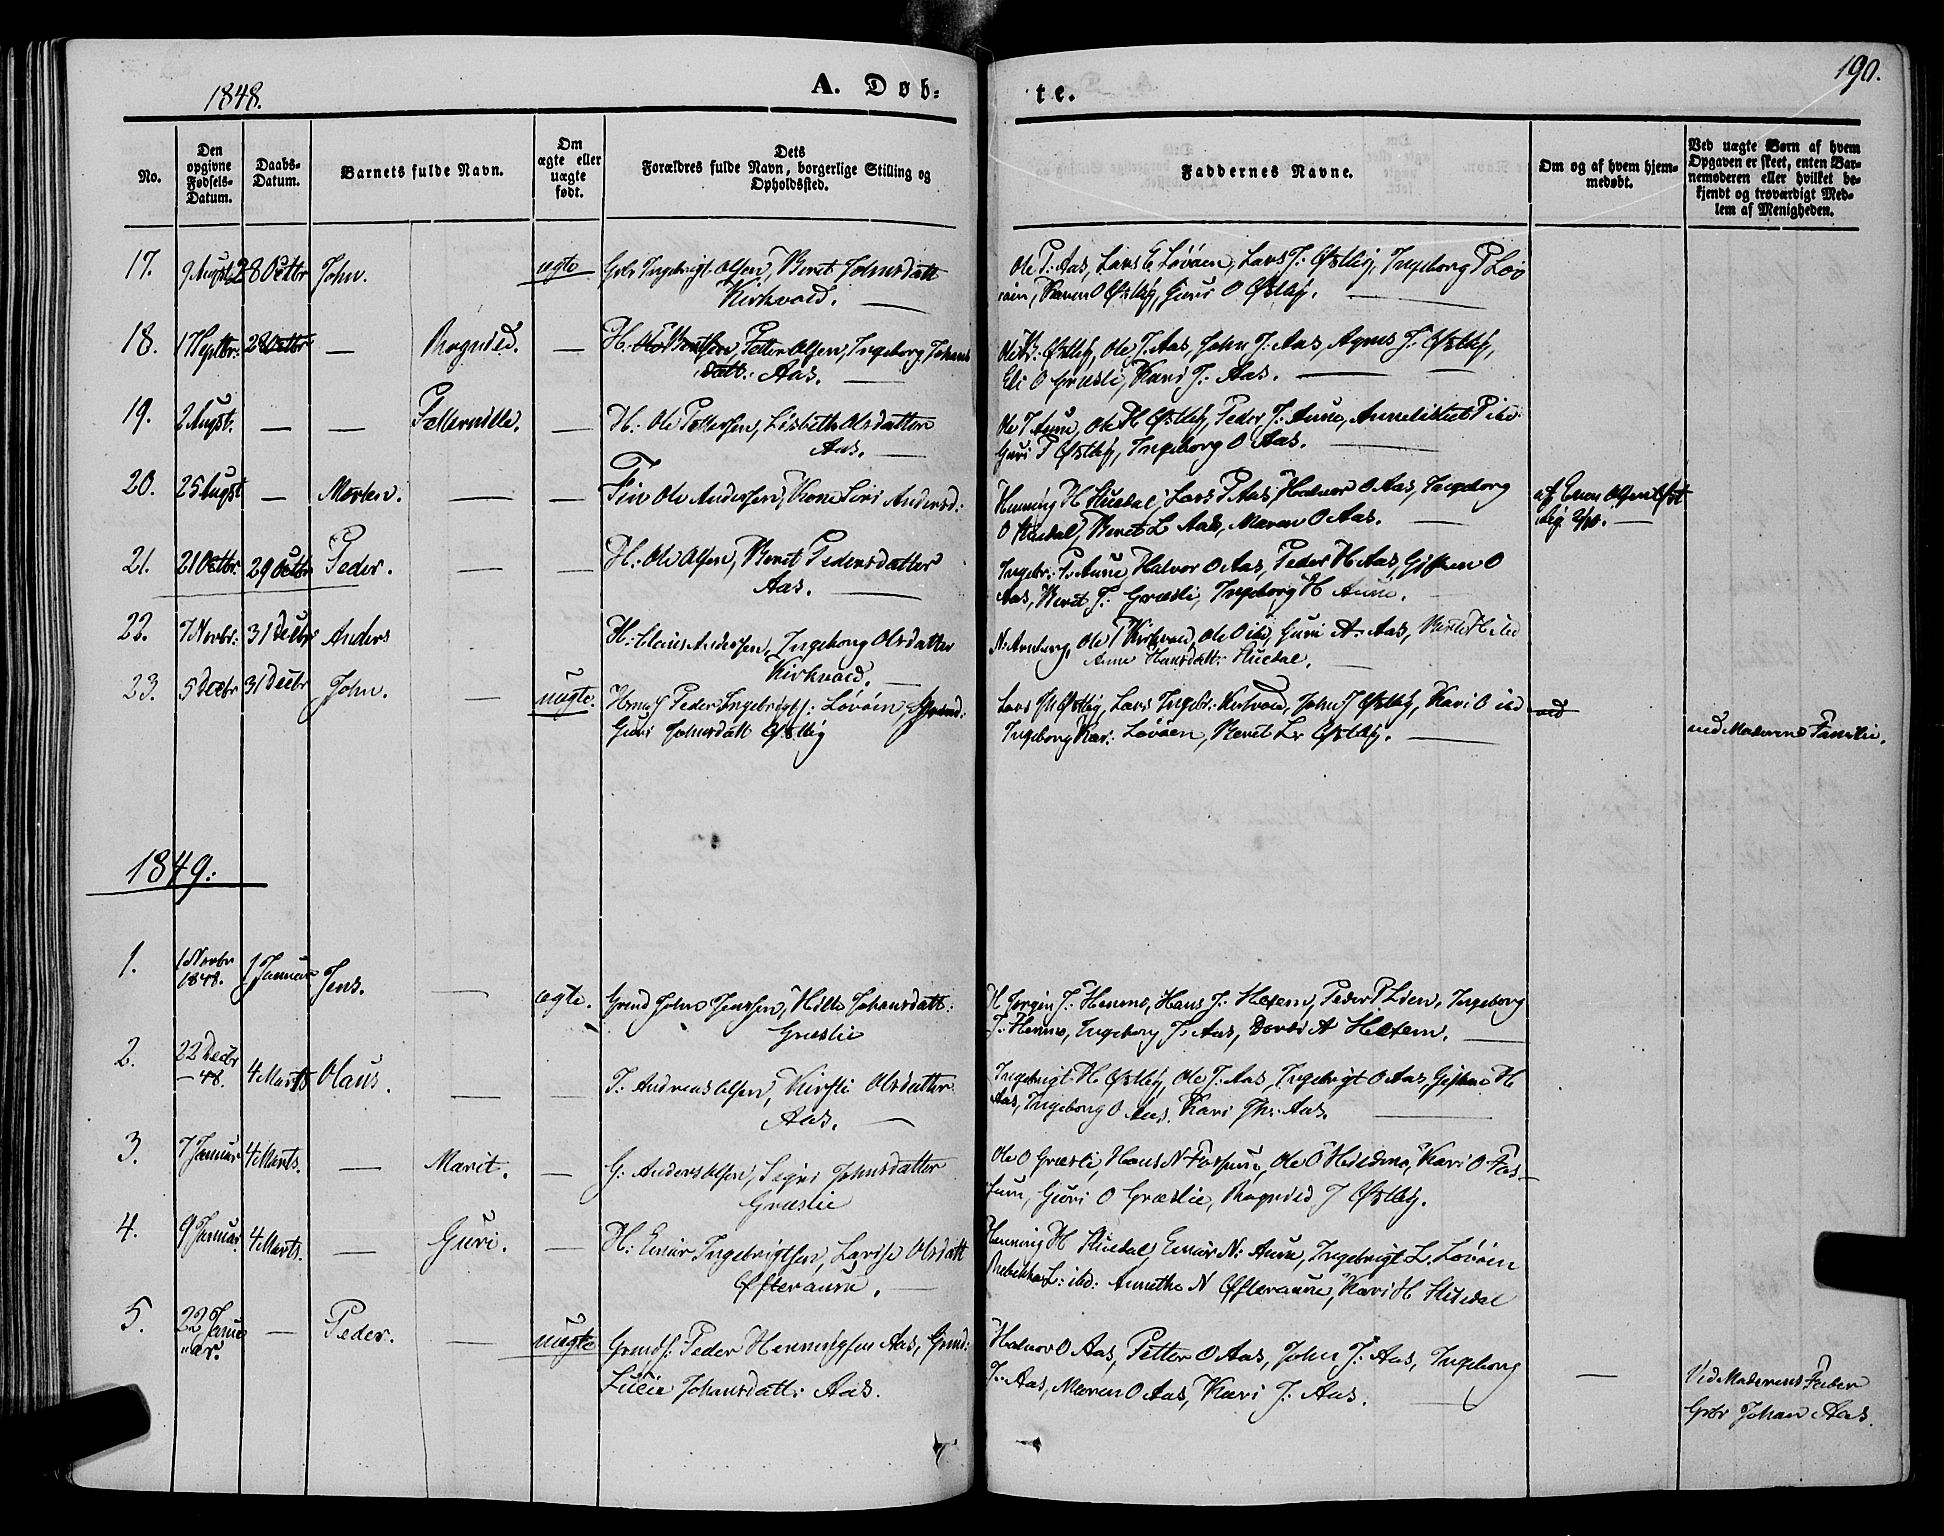 1848.
A. Døb-
te.
190.
No.
Den opgivne Fødsels-Datum.
Daabs-Datum.
Barnets fulde Navn.
Om ægte eller uægte født.
Dets Forældres fulde Navn, borgerlige Stilling og Opholdssted.
Faddernes Navne.
Om og af hvem hjem-medøbt.
Ved uægte Børn af hvem Opgaven er skeet, enten Bar-nemoderen eller hvilket be-kjendt og troværdigt Med-lem af Menigheden.
17. 9 Augst 28 Octbr John. ægte Gbr Ingebrigt Olsen, Beret Johnsdatt
Kirkvold.
Ole P. Aas, Lars E Løvøen, Lars J: Østby, Ingeborg P Løv
øen, Karen O Østby, Guri O Østby.
18. 17 Septbr: 28 Octbr — Ragnild. — H: Petter Olsen, Ingeborg Johans
datt: Aas.
Ole Østby, Ole J. Aas, John J: Aas, Agnes J. Østby,
Eli O Græsli, Kari J: Aas.
19. 2 Augst. — — Petternille. — H: Ole Pettersen, Lisbeth Olsdatter
Aas.
Ole J Aune, Ole H Østby, Peder J: Aune, P ibd:
Guri P Østby, Ingeborg O Aas.
20. 25 Augst — Morten. — — Fin Ole Andersen, Kone Siri Andersd:
Henning H Stuedal, Lars P Aas, Halvor O Aas, Ingeborg
O Stuedal, Beret L Aas, Maren O Aas.
af Olsen
21. 21 Octbr: 29 Octbr Peder. — — H: Ole Olsen, Beret Pedersdatter
Aas.
Ingebr: P. Aune, Halvor O Aas, Peder H Aas, Gjsken O
Aas, Beret J: Græsli, Ingeborg H Aune.
22. 7 Novbr: 31 Decbr: Anders H: Claus Andersen, Ingeborg Olsdatter
Kirkvold.
N: Arnberg, Ole P Kirkvold, Ole O ibd, Guri A. Aas, H ibd
Anne Hansdatt: Stuedal.
23. 5 Decbr 31 Decbr John. — uægte. Peder Ingebrigts: Løvøen,
Guri Johnsdatt Østby
Lars Østby, Lars Ingebr: Kirkvold, John J Østby, Kari O ibd
Ingeborg Løvøen, Beret L Østby.
ved Moderens Familie.
1849:
1. 1 Novbr
1848. 1 Januar Jens. — ægte. Grmd John Jenssen, Hilla Johansdatt:
Græslie
H Jørgen J: Henmo, Hans J: Hetem, Peder P Lien, Ingeborg
J: Henmo, Ingeborg J: Aas, A Hetem.
2. 22 Decbr
— 48. 4 Marts Olaus. — — J. Andreas Olsen, Kirsti Olsdatter
Aas.
Ingebrigt H. Østby, Ole J: Aas, Ingebrigt O Aas, H
Aas, Ingeborg O Aas, Kari Aas.
3. 7 Januar 4 Marts. — Marit. — G: Anders Olsen, Segri Johnsdatter
Græslie
Ole O Græsli, Hans N Fossum, Ole O Kari O Fos-
sum, Guri O Græslie, Ragnild J Østby.
4. 9 Januar 4 Marts. — Guri. — H: Einar Ingebrigtsen, Lovise Olsdatt
Østeraune.
Henning H Stuedal, Einar N: Aune, Ingebrigt L Løvøen
Rebekka L: ibd: Annethe N Østeraune, Kari H Stuedal
5. 22 Janu-
ar. — Peder. — uægte Grmds: Peder Henningsen Aas, Grmd:
Lucie Johansdatt: Aas.
Halvor O Aas, Petter O Aas, John J: Aas, Ingeborg
J: Aas, Maren O Aas, Kari J: Aas.
— Ved Moderens Fader
Gbr Johan Aas.